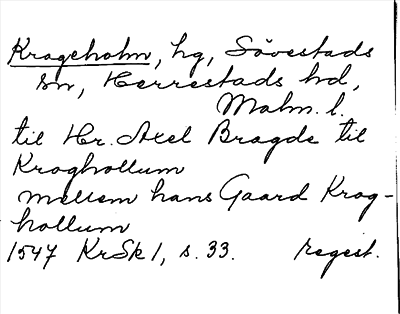 Krageholm, hg, Sövestads
sn, Herrestads hd,
Malm. l.
til Hr. Axel Bragde til
Kroghollum
mellem hans Gaard Krog-
hollum
1547 KrSk 1, s. 33. regest.